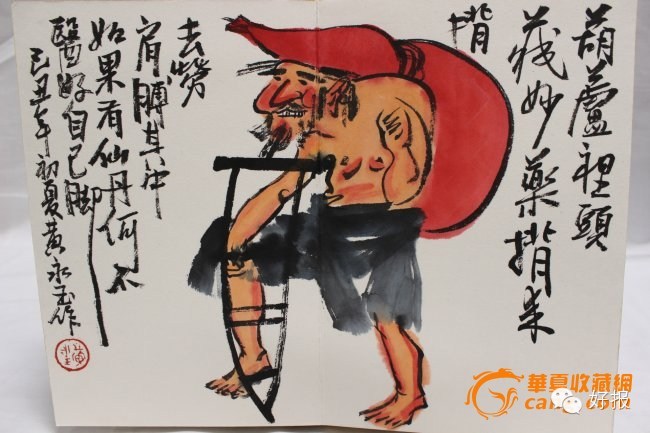 葫蘆裡頭
藏妙藥揹来
揹
去勞
肩膊其中
如果有仙丹何不
醫好自己脚
己丑年初夏黄永玉作
華夏收藏網
好报